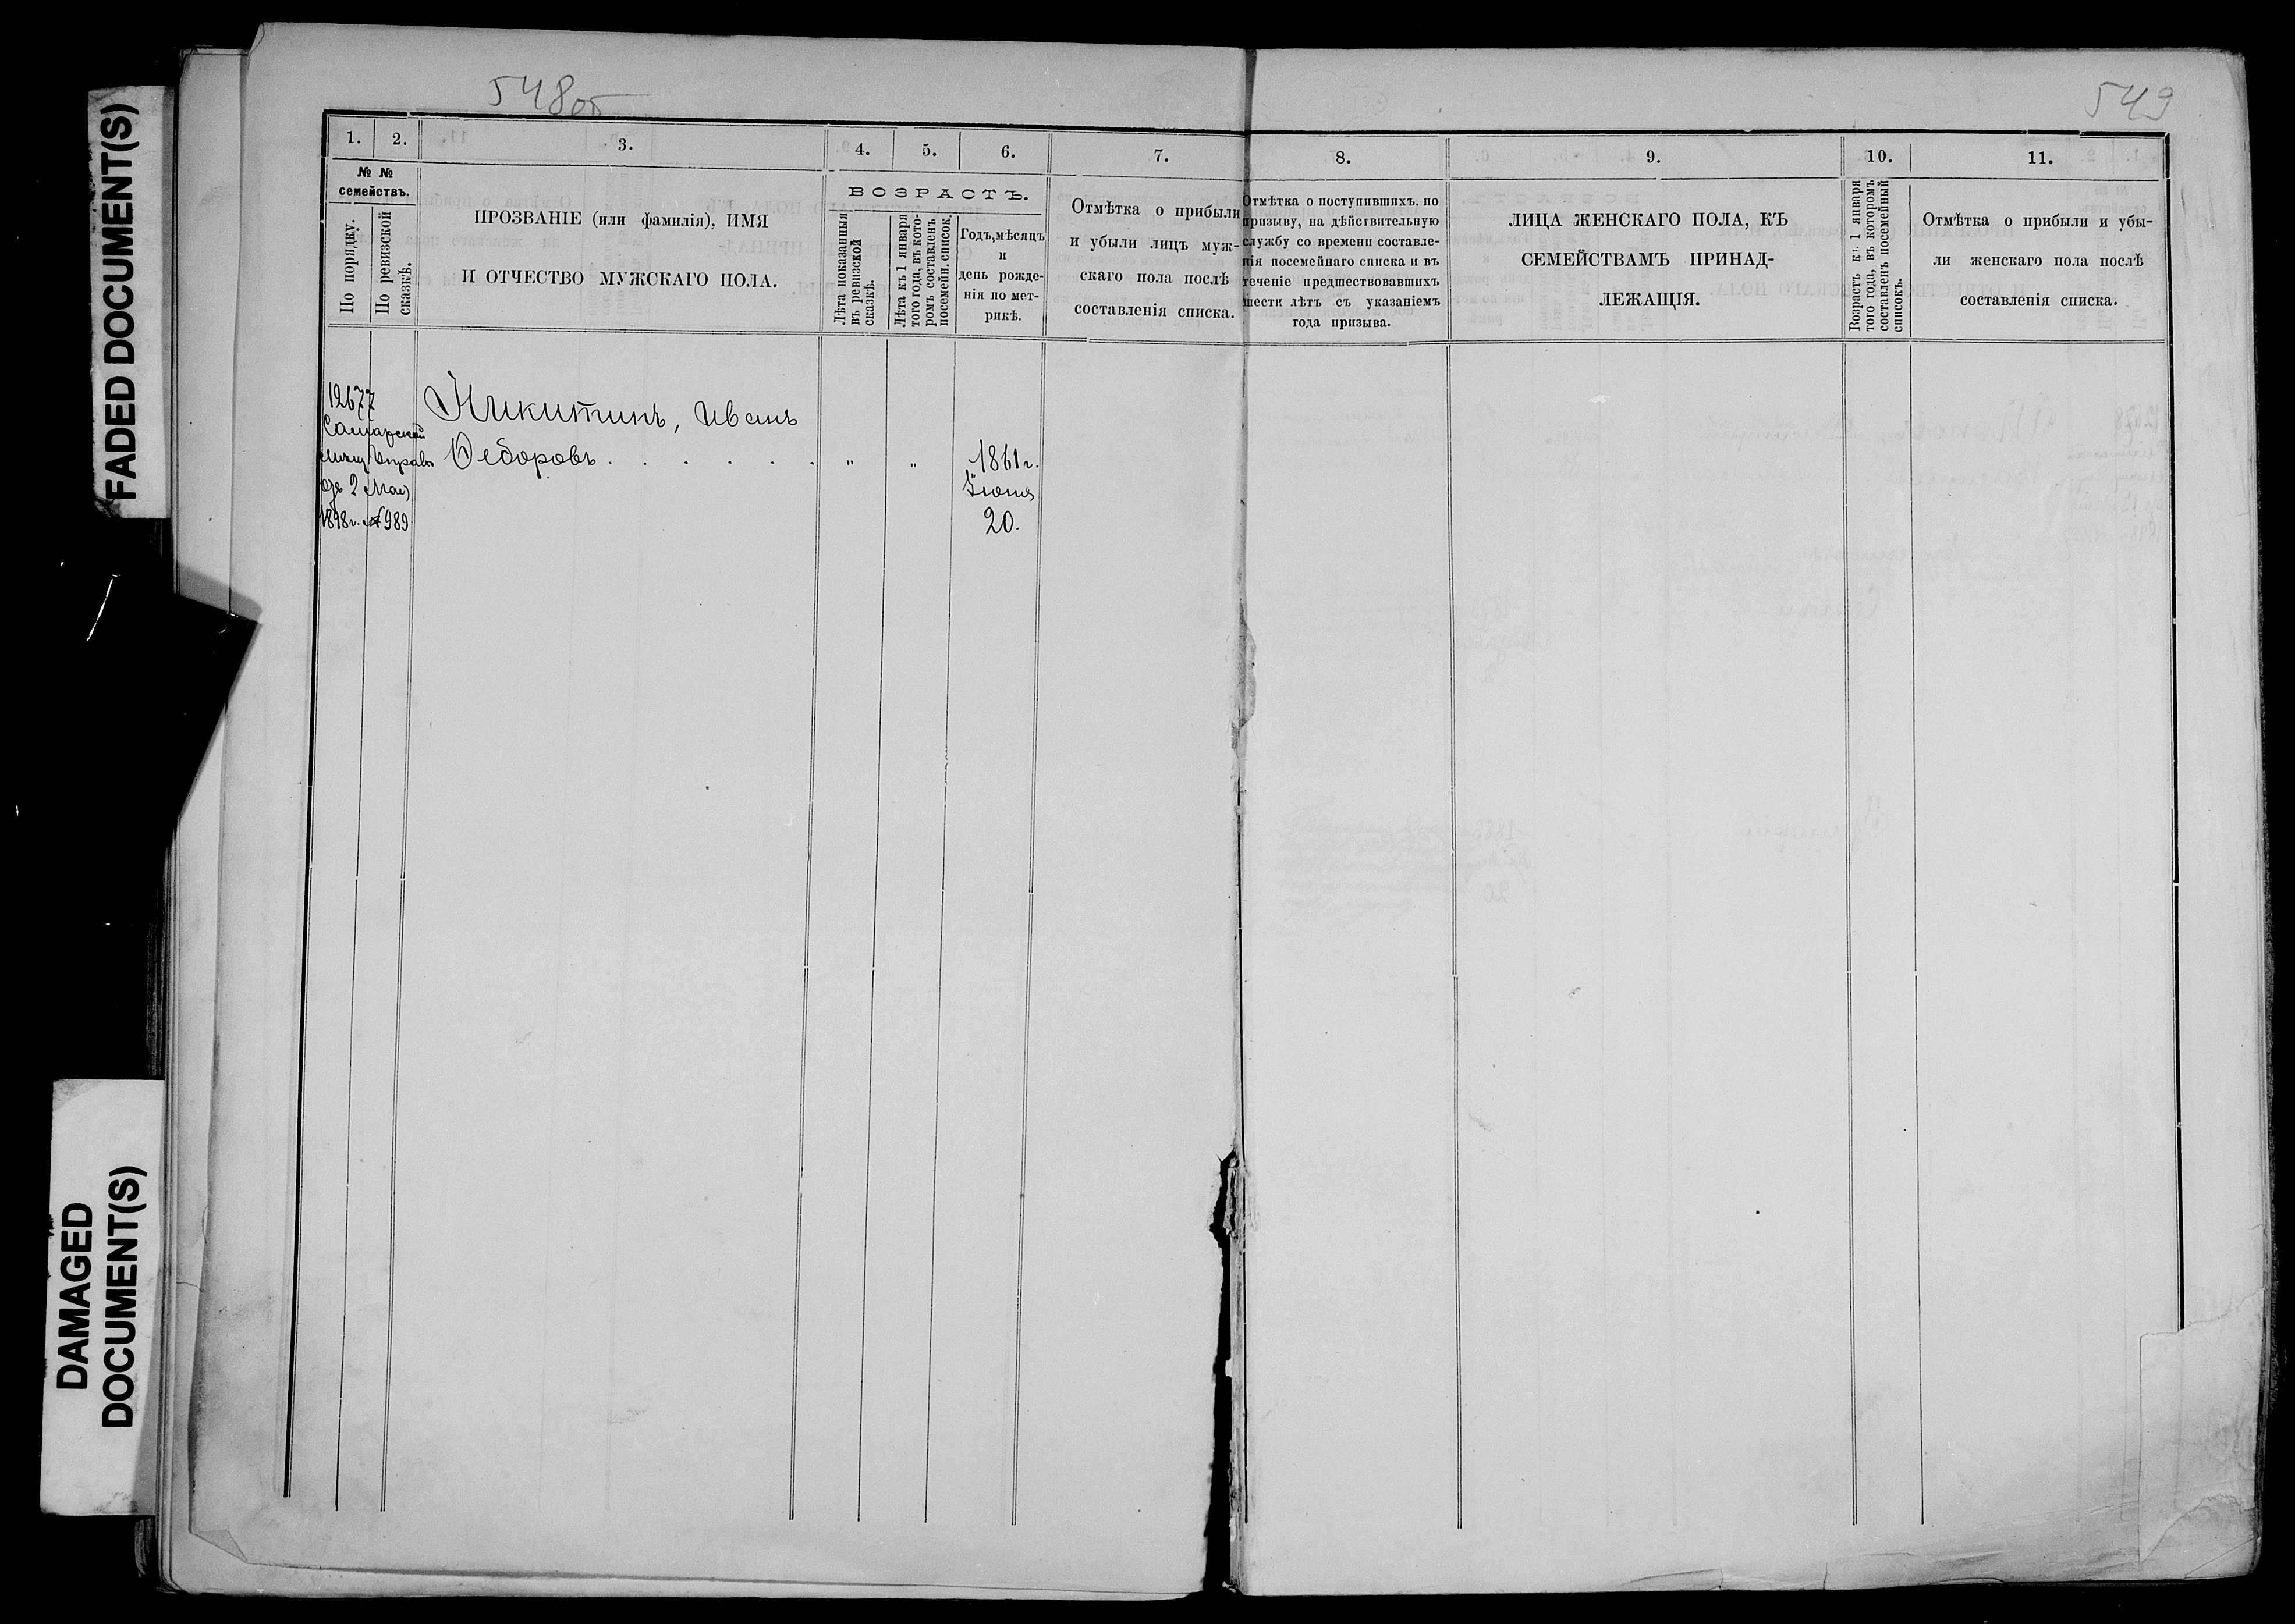 FADED DOCUMENT(S)
DAMAGED
DOCUMENT(S)
548об
549
1. 2. 3. 4. 5. 6. 7. 8. 9. 10. 11.
№ №
семействъ.
По порядку.
По ревизской
сказкѣ.
ПРОЗВАНІЕ (или фамилія), ИМЯ
И ОТЧЕСТВО МУЖСКАГО ПОЛА.
ВОЗРАСТЪ.
Лѣта показанныя
въ ревизской
сказкѣ.
Лѣта къ 1 января
того года, въ кото-
ромъ составленъ
посемейн. список.
Годъ, мѣсяцъ
и
день рожде-
нія по мет-
рикѣ.
Отмѣтка о прибыли
и убыли лицъ муж-
скаго пола послѣ
составленія списка.
Отмѣтка о поступившихъ. по
призыву, на дѣйствительную
службу со времени составле-
нія посемейнаго списка и въ
теченіе предшествовавшихъ
шести лѣтъ съ указаніемъ
года призыва.
ЛИЦА ЖЕНСКАГО ПОЛА, КЪ
СЕМЕЙСТВАМЪ ПРИНАД-
ЛЕЖАЩІЯ.
Возрастъ къ 1 января
того года, въ которомъ
составленъ посемейный
списокъ.
Отмѣтка о прибыли и убы-
ли женскаго пола послѣ
составленія списка.
12677
Самарской
мѣщ. Управы
2 Мая
1898 г. № 989
Никитинъ, Иванъ
Ѳедоровъ . . . . . . " " 1861 г.
Іюня
20.